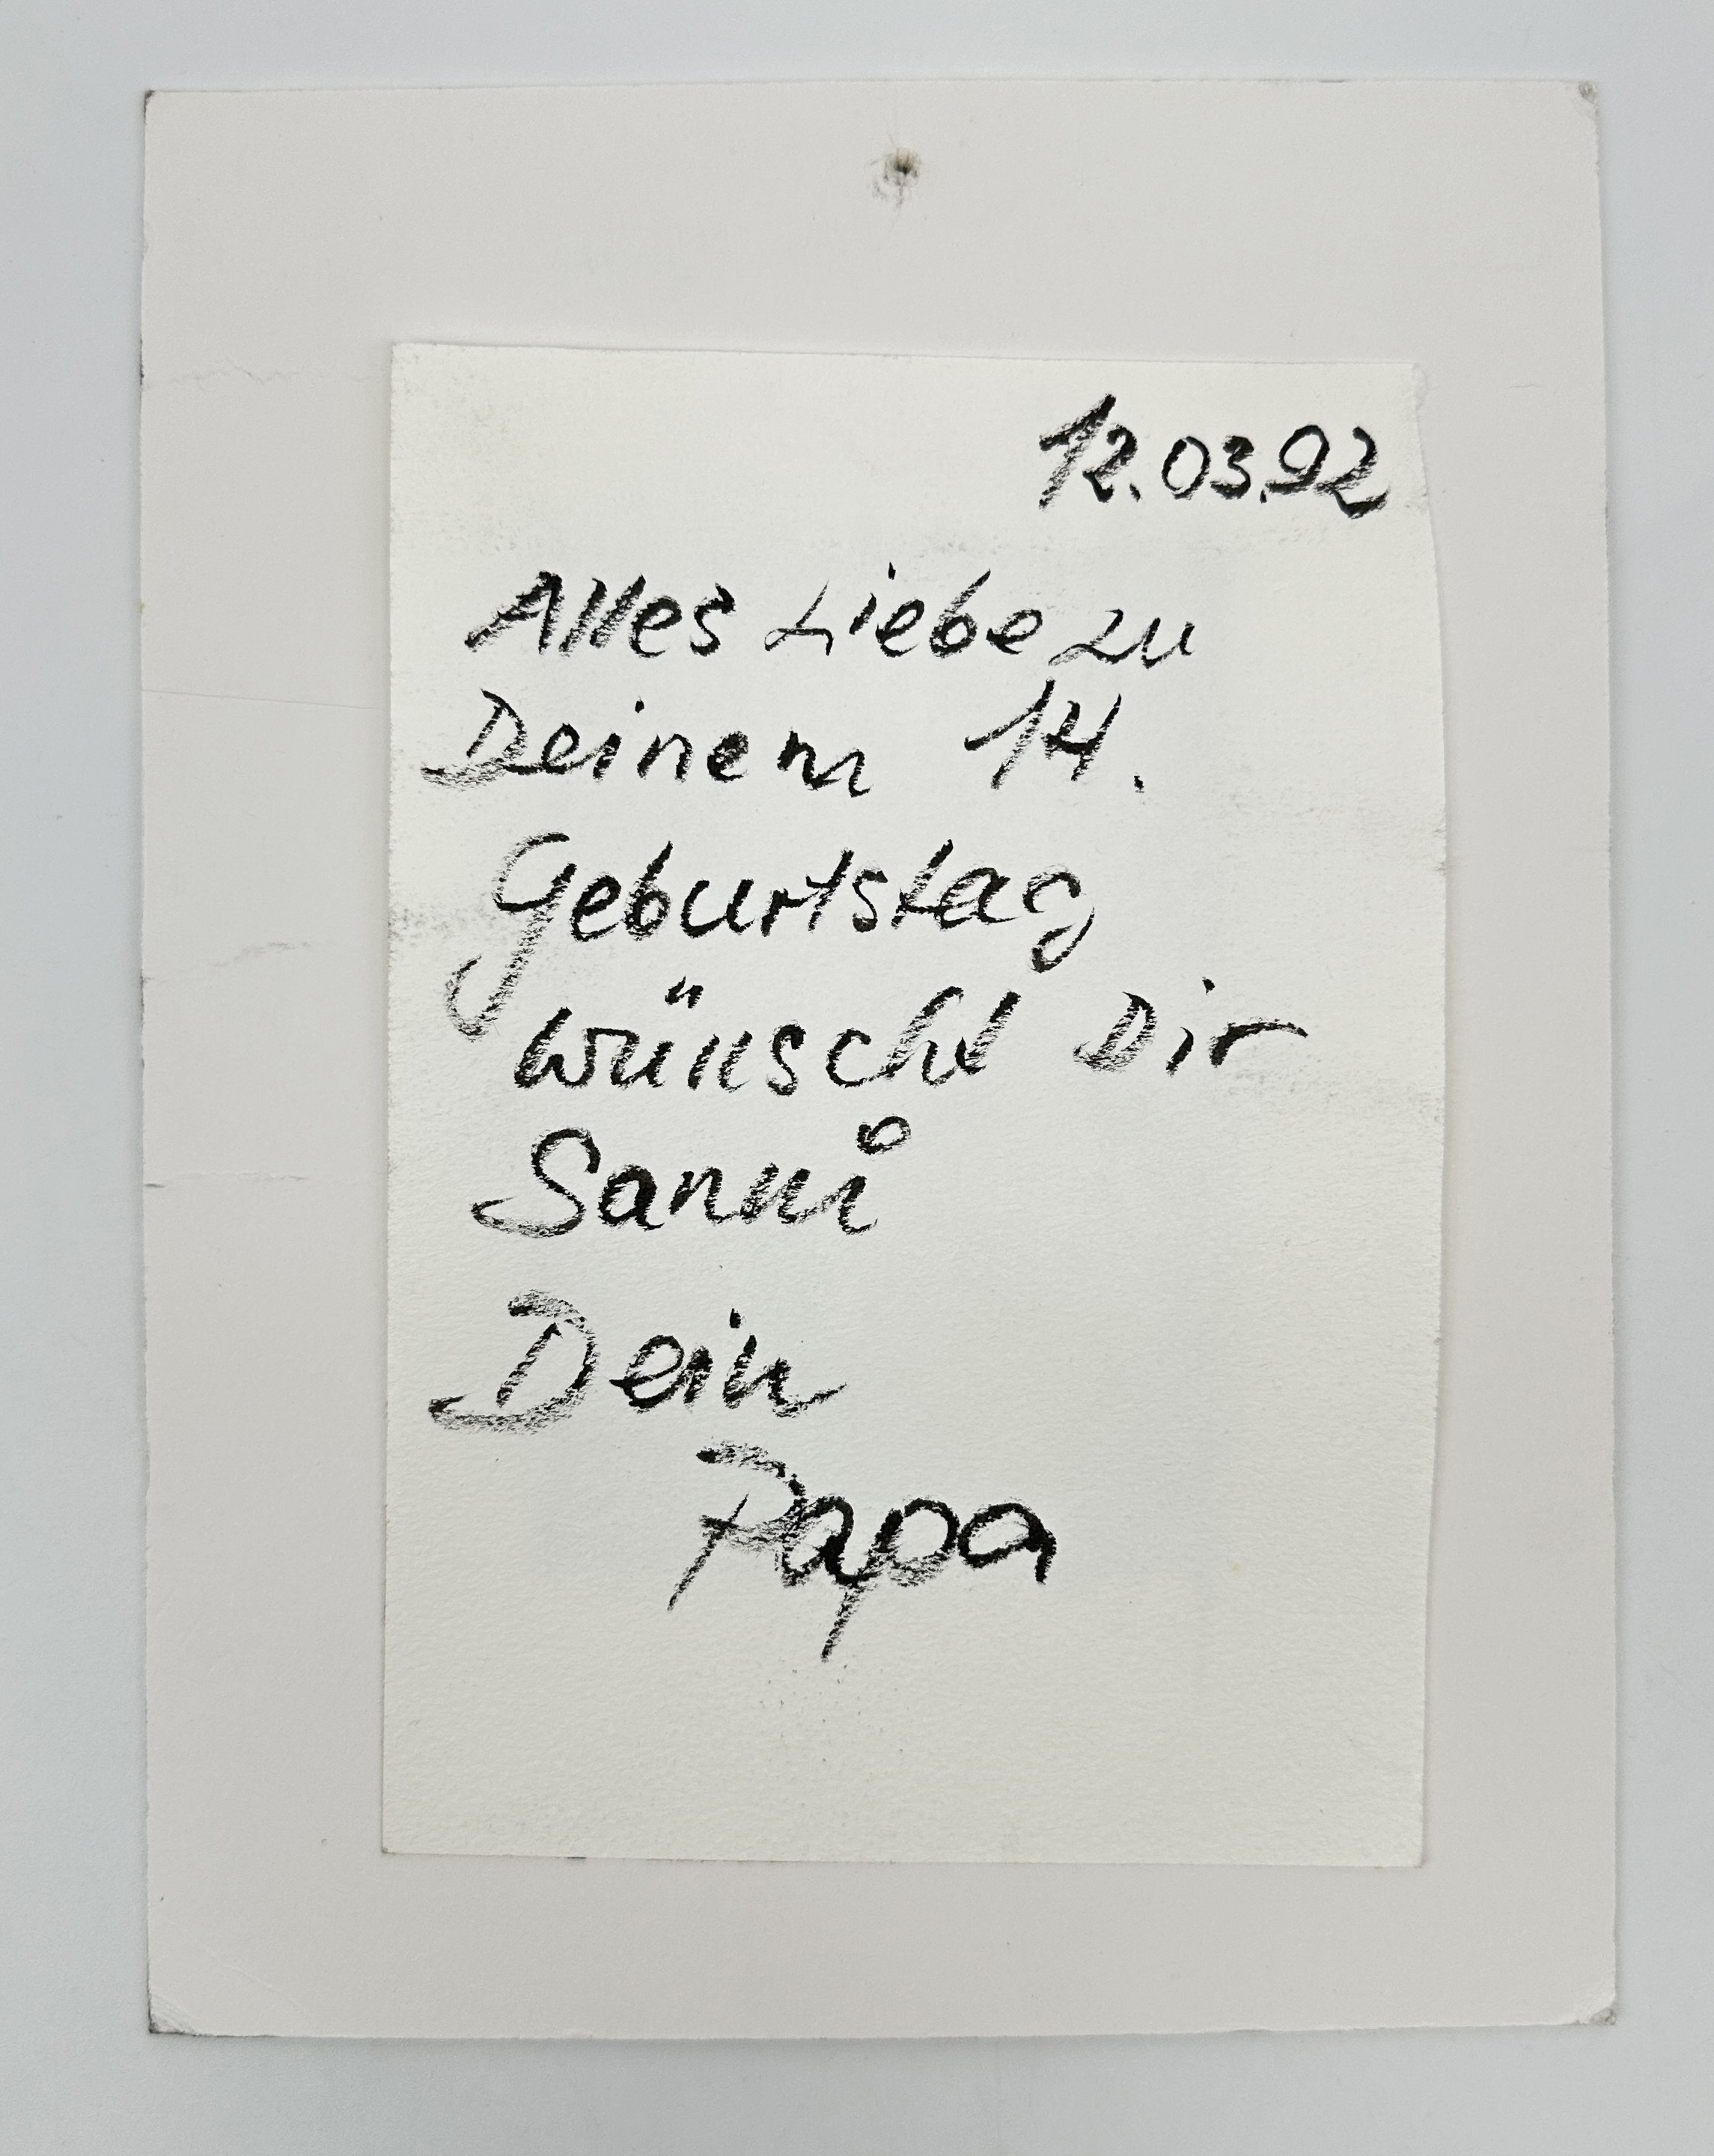 12.03.92
Alles Liebe zu
Deinem 14.
Geburtstag
wünscht Dir
Sanni
Dein
Papa